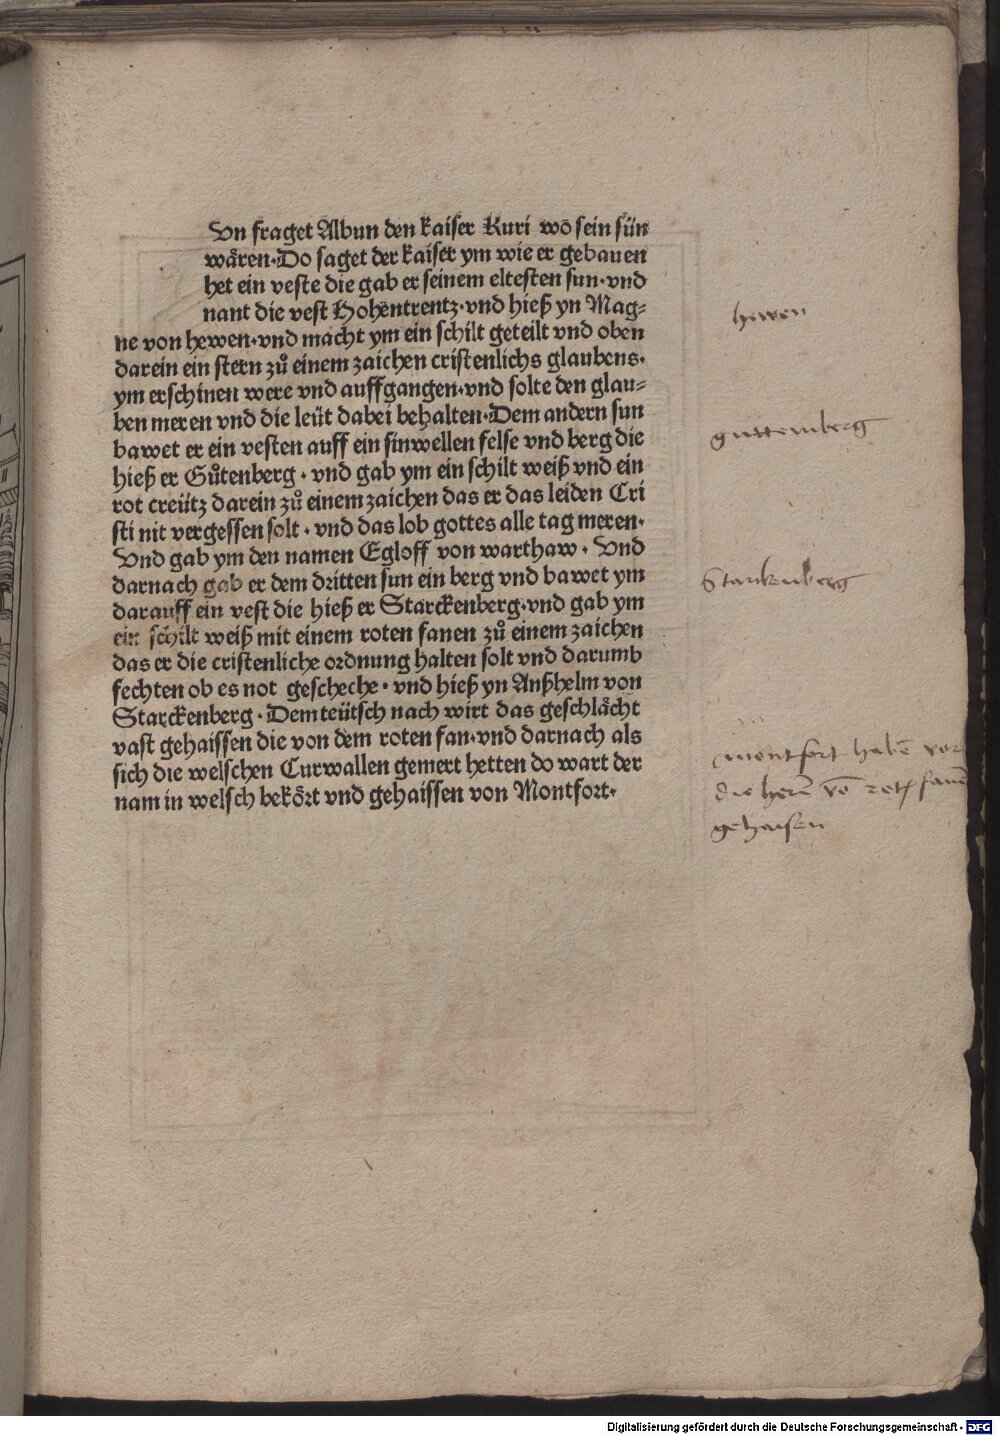 Vn fraget Albun den kaiser Kuri wo̅ sein sün
wären·Do saget der kaiser ym wie er gebauen
het ein veste die gab er seinem eltesten sun·vnd
nant die vest Hohentrentz·vnd hieß yn Mag⸗
ne von hewen·vnd macht ym ein schilt geteilt vnd oben
darein ein stern zů einem zaichen cristenlichs glaubens·
ym erschinen were vnd auffgangen·vnd solte den glau⸗
ben meren vnd die leüt dabei behalten·Dem andern sun
bawet er ein vesten auff ein sinwellen felse vnd berg die
hieß er Gůtenberg · vnd gab ym ein schilt weiß vnd ein
rot creütz darein zů einem zaichen das er das leiden Cri
sti nit vergessen solt · vnd das lob gottes alle tag meren·
Vnd gab ym den namen Egloff von warthaw · Vnd
darnach gab er dem dritten sun ein berg vnd bawet ym
darauff ein vest die hieß er Starckenberg·vnd gab ym
ein schilt weiß mit einem roten fanen zů einem zaichen
das er die cristenliche ordnung halten solt vnd darumb
fechten ob es not gescheche · vnd hieß yn Anßhelm von
Starckenberg · Dem teütsch nach wirt das geschlächt
vast gehaissen die von dem roten fan·vnd darnach als
sich die welschen Curwallen gemert hetten do wart der
nam in welsch bekört vnd gehaissen von Montfort·
hewen
guttemberg
Starkenberg
montfort habe̅ vor
die here̅ vo̅ rot fane̅
gehaisen
Digitalisierung gefördert durch die Deutsche Forschungsgemeinschaft - DFG